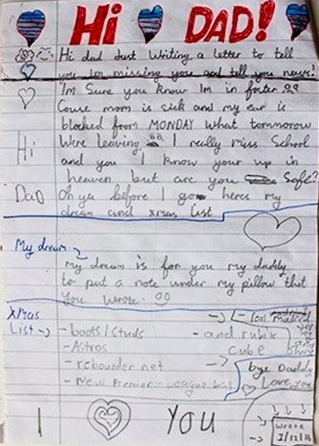 Hi DAD!
Hi dad Just Writing a letter to tell
you Im missing you and tell you news!
I'm Sure you know Im in foster
Couse mom is sick and my ear is
blocked from MONDAY what tommorow
Were leaving I really miss School
Hi
and you I know your up in
heaven but are you Safe?
Dad
Oh ya before I go heres my
dream and xmas list
My dream
my dream is for you my daddy
to put a note under my pillow that
you wrote.
Xmas
List
- boots/studs
- Astros
- rebounder net
- New Premier League ball
- and rubix
cube
bye Daddy
Love you
I YOU
wrote